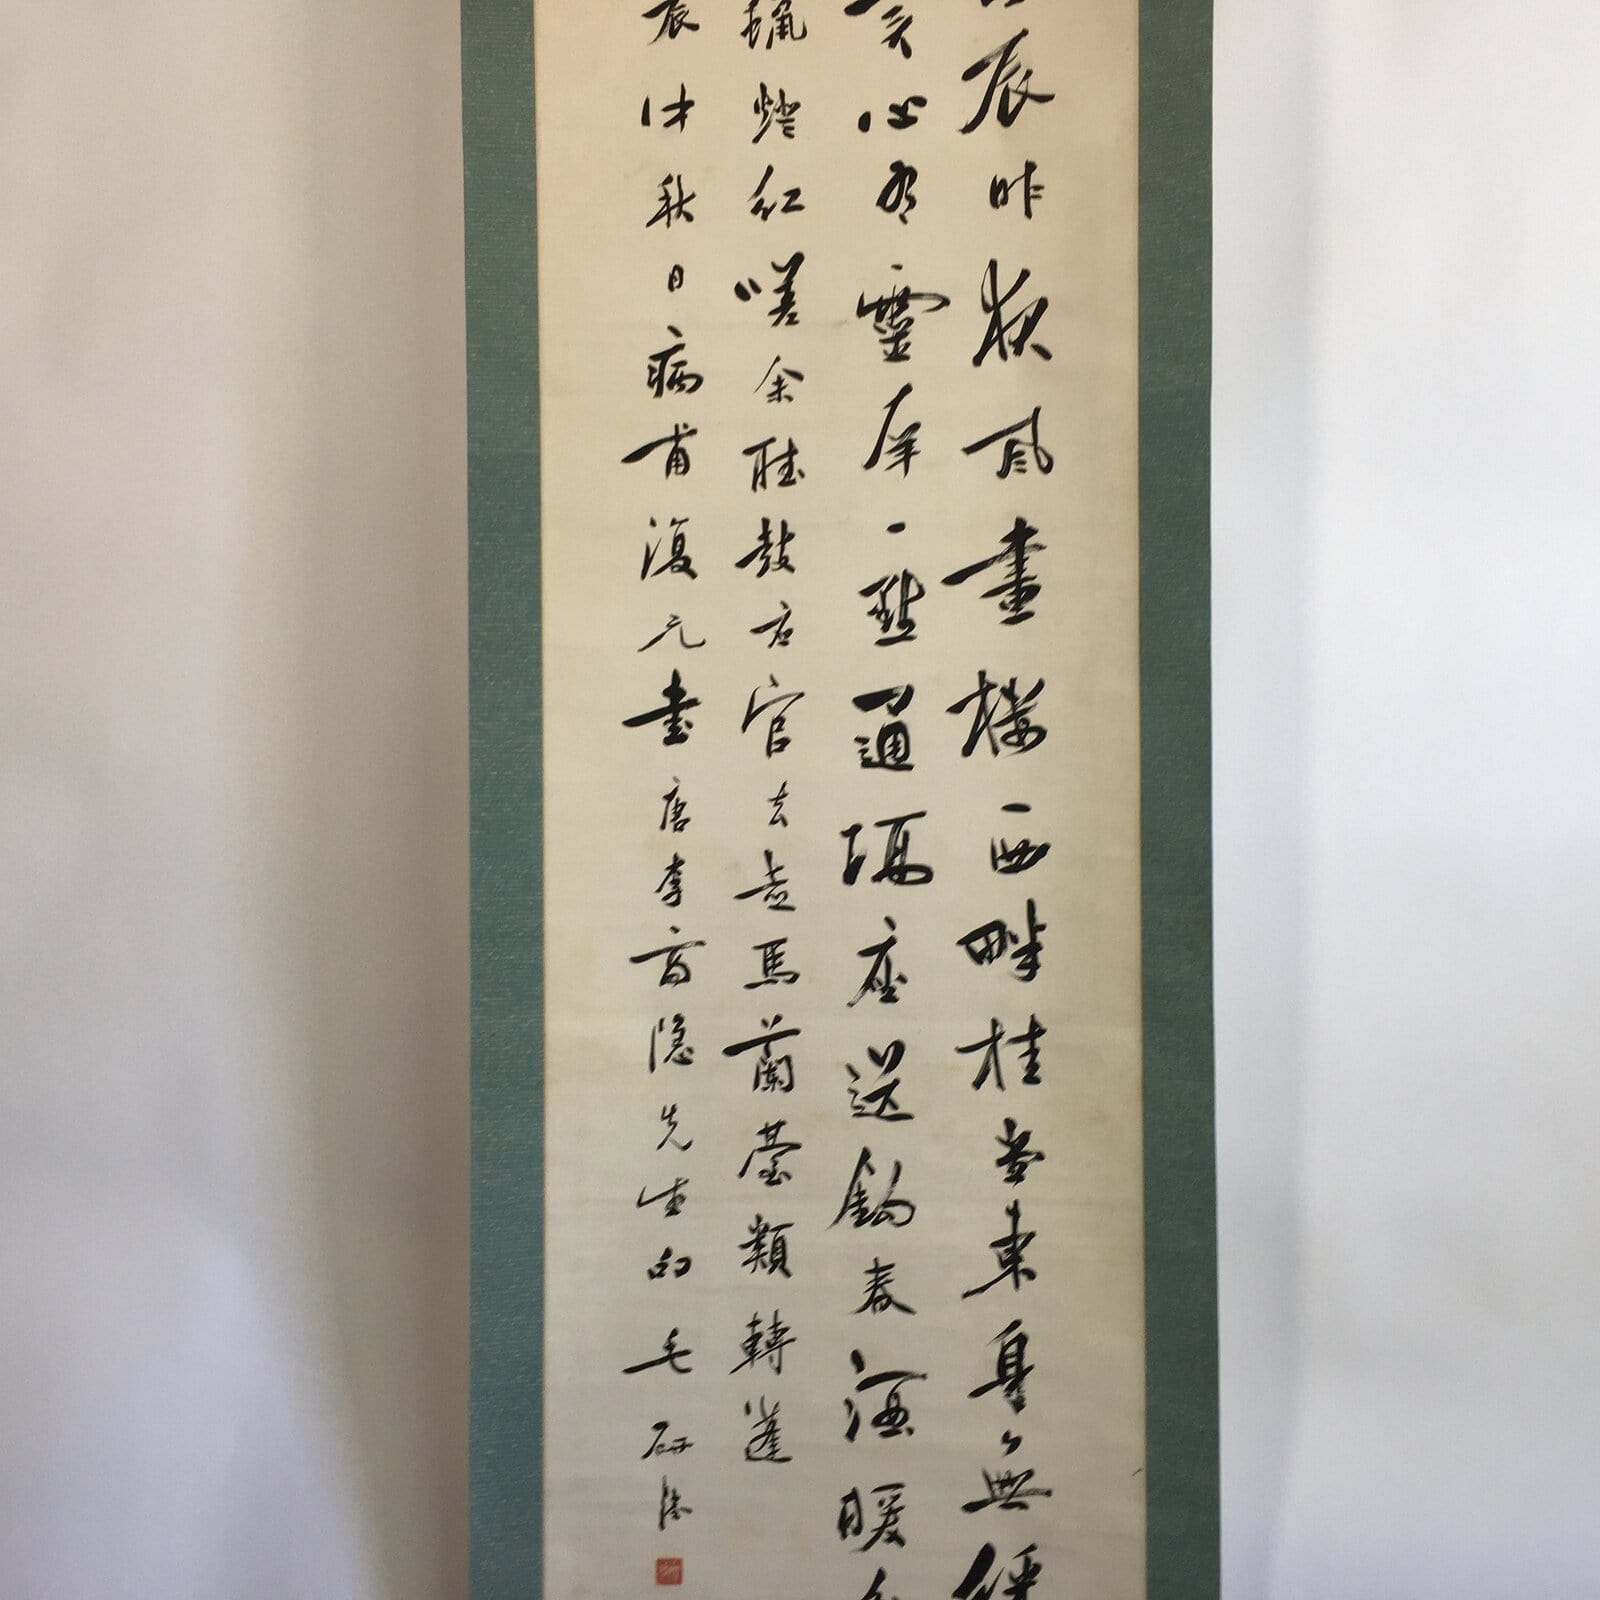 辰昨夜風畫樓西畔桂堂東身無綵
翼心有靈犀一點通隔座送鉤春酒暖
蠟燈紅嗟余聽鼓應官去走馬蘭臺類轉蓬
辰仲秋日病甫復元書唐李商隱先生句毛研